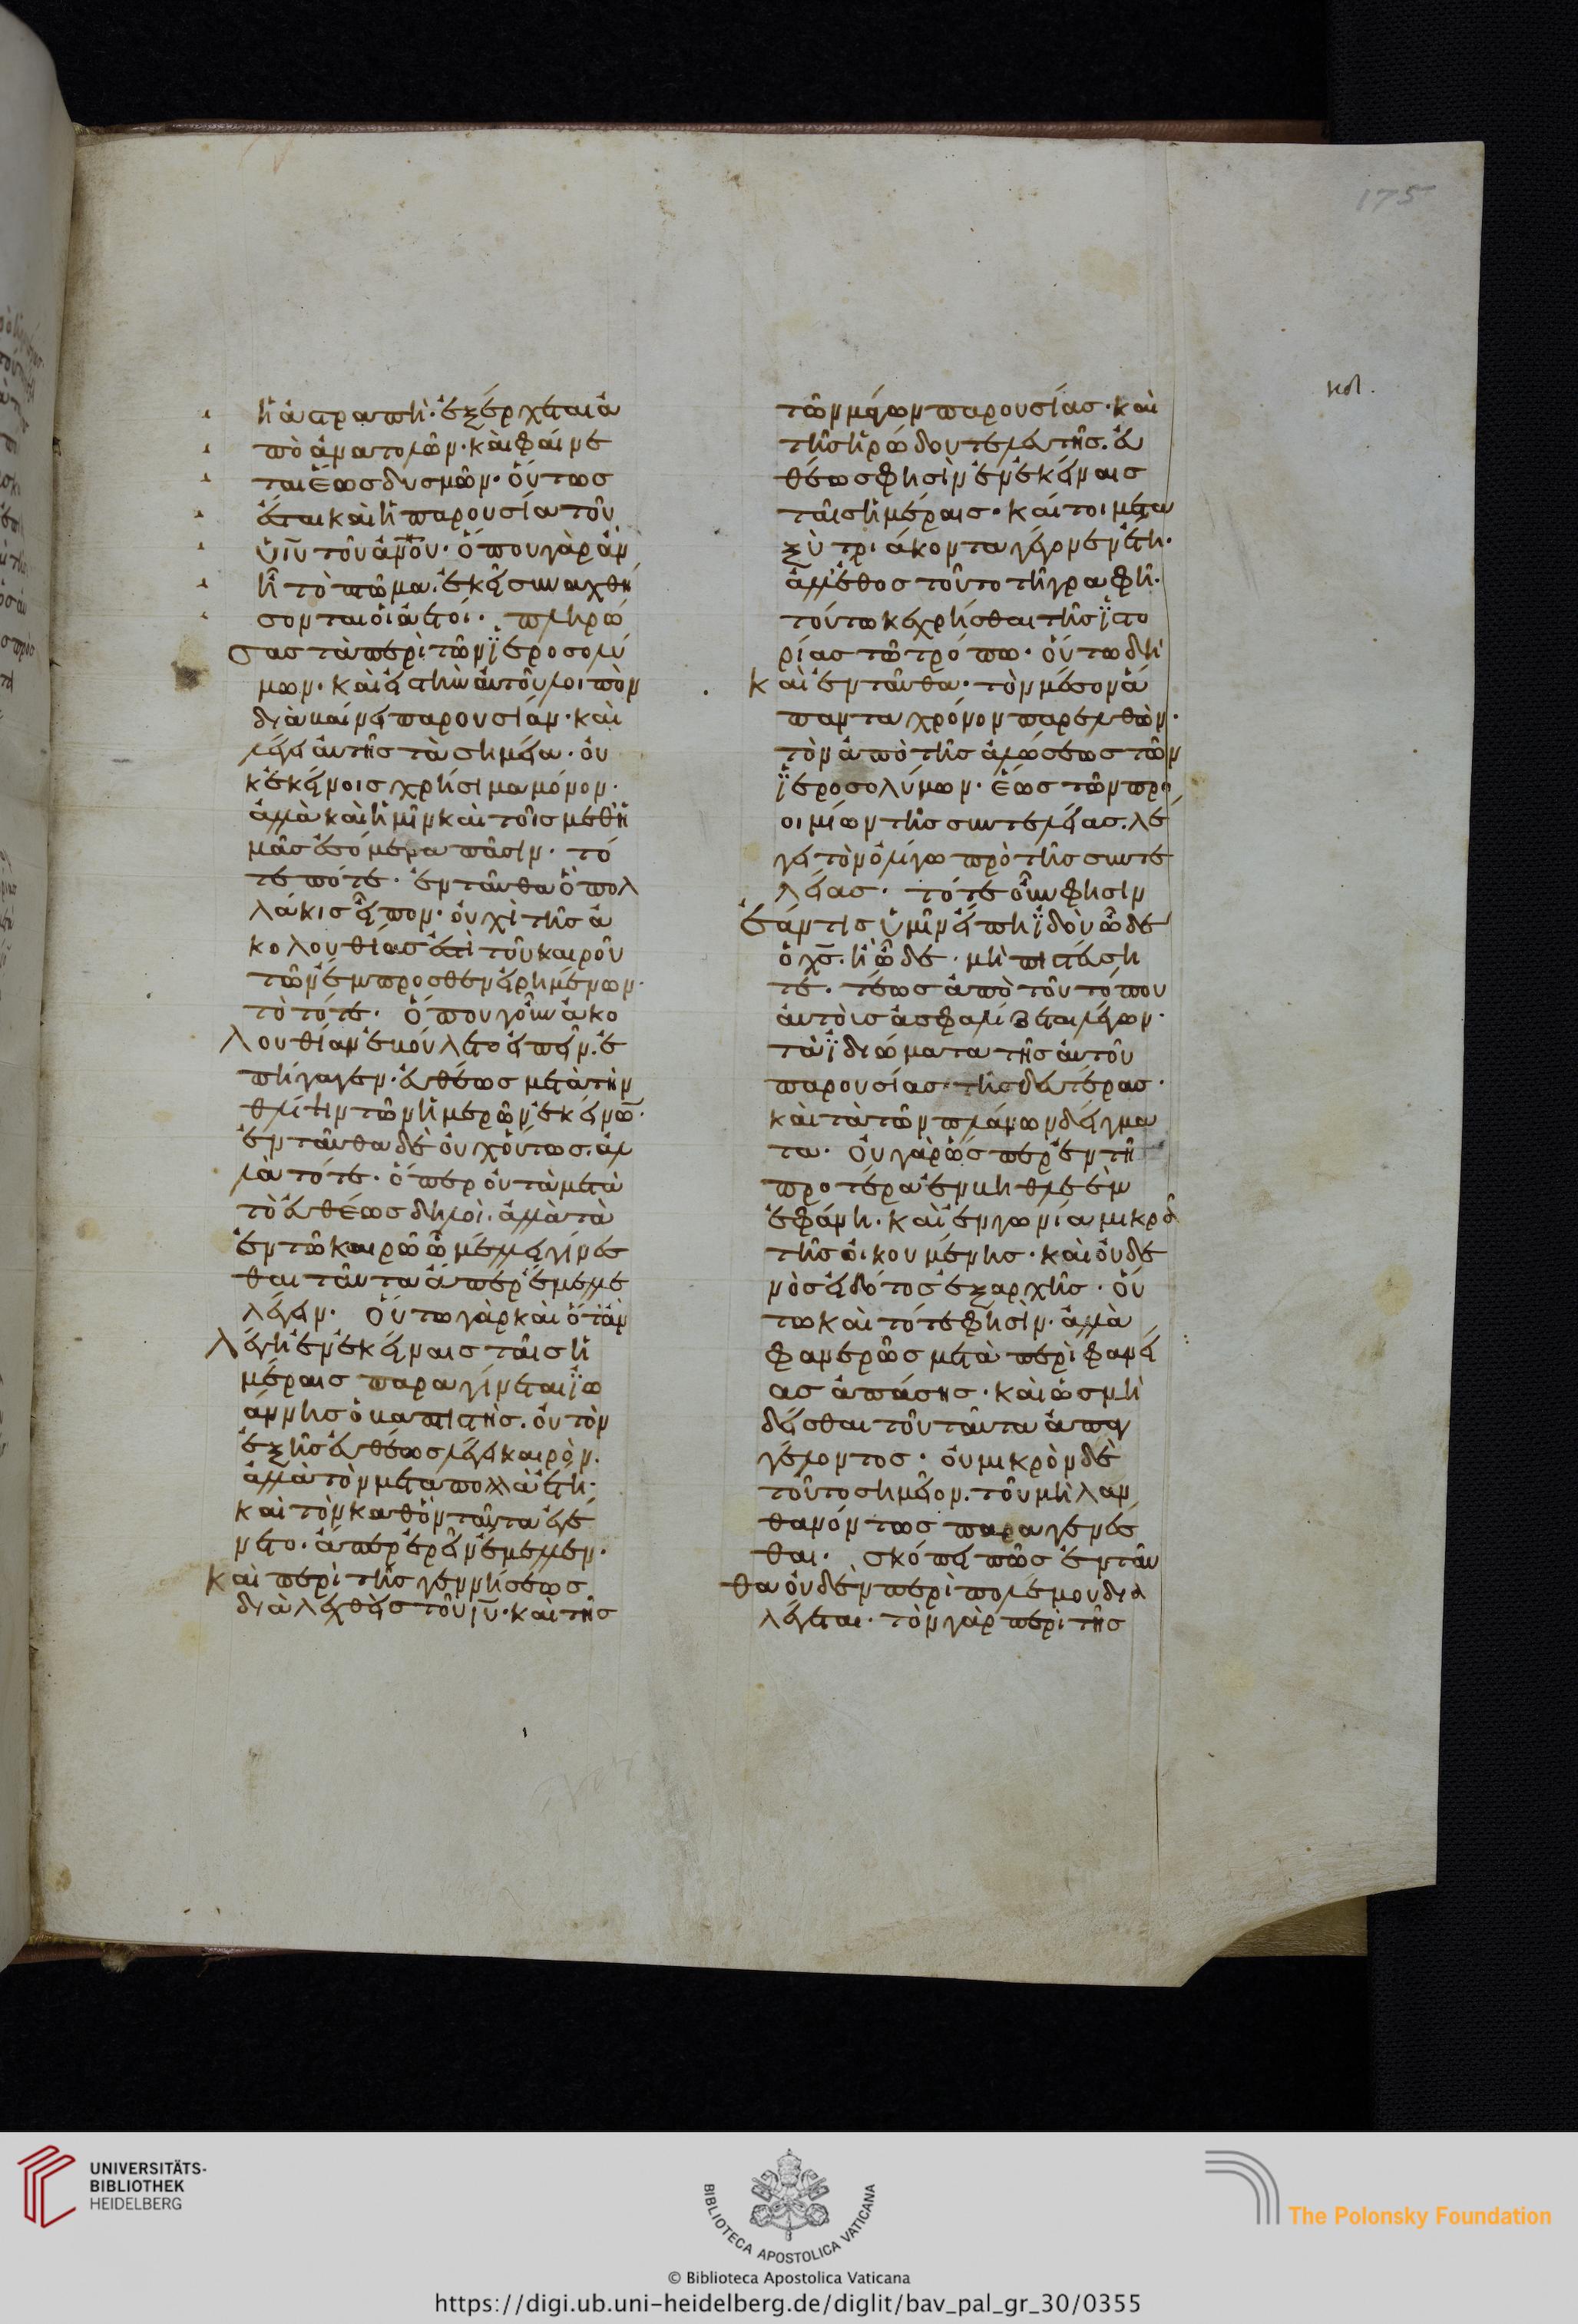 175
ἡ ἀστραπὴ· ἐξέρχεται ἀ
πὸ ἀνατολῶν· καὶ φαίνε
ται ἕως δυσμῶν· οὕτως
ἔσται καὶ ἡ παρουσία τοῦ
υἱῦ τοῦ ἀνου· ὅπου γὰρ ἂν
ἦ τὸ πτῶμα. ἐκεῖ συναχθή
σονται οἱ ἀετοί· πληρώ
σας τὰ περὶ τῶν ἱεροσολύ
μων. καὶ εἰς τὴν αὐτοῦ λοιπὸν
διαβαίνει παρουσίαν· καὶ
λέγει αὐτῆς τὰ σημεῖα. οὐ
κ ἐκείνοις χρήσιμα μόνον·
ἀλλὰ καὶ ἡμῖν καὶ τοῖς μεθ ἡ
μᾶς ἐσόμενα πᾶσιν· τό
τε πότε· ἐνταῦθα ὃ πολ
λάκις εἶπον· οὐχὶ τῆς ἀ
κολουθίας ἐστὶ τοῦ καιροῦ
τῶν ἔμπροσθεν εἰρημένων·
τὸ τότε. ὅπου γοῦν ἀκο
λουθίαν ἐβούλετο εἰπεῖν. ἐ
πήγαγεν. εὐθέως μετὰ τὴν
θλίψιν τῶν ἡμερῶν ἐκείνων·
ἐνταῦθα δὲ οὐχ οὕτως. ἀλ
λὰ τότε. ὅπερ οὐ τὰ μετὰ
τὸ εὐθέως δηλοῖ. ἀλλὰ τὰ
ἐν τῶ καιρῶ ὧ ἔμελλε γίνεσ
θαι ταῦτα ἅπερ ἔμελλε
λέγειν. οὕτω γὰρ καὶ ὅταν
λέγη ἐν ἐκείναις ταῖς ἡ
μέραις παραγίνεται ἰω
άννης ὁ βαπτιστὴς. οὐ τὸν
ἑξῆς εὐθέως λέγει καιρὸν.
ἀλλὰ τὸν μετὰ πολλὰ ἔτη·
καὶ τὸν καθ ὃν ταῦτα ἐγέ
νετο. ἅπερ ἐρεῖν ἔμελλεν.
καὶ περὶ τῆς γεννήσεως
διαλεχθεὶς τοῦ ιυ. καὶ τῆς
τῶν μάγων παρουσίας· καὶ
τῆς ἡρώδου τελευτῆς. εὐ
θέως φησὶν ἐν ἐκείναις
ταῖς ἡμέραις. καίτοι μετα
ξὺ τριάκοντα γέγονεν ἔτη.
ἀλλ' ἔθος τοῦτο τῆ γραφῆ.
τούτω κεχρῆσθαι τῆς ἱστο
ρίας τῶ τρόπω. οὕτω δὴ
καὶ ἐνταῦθα. τὸν μέσον ἅ
παντα χρόνον παρελθὼν.
τὸν ἀπὸ τῆς ἁλώσεως τῶν
ἱεροσολύμων. ἕως τῶν προ
οιμίων τῆς συντελείας. λέ
γει τὸν ὀλίγω πρὸ τῆς συντε
λείας. τότε οὖν φησιν
ἐάν τις ὑμῖν εἴπη ἰδοὺ ὧδε
ὁ χς. ἢ ὧδε. μὴ πιστεύση
τε. τέως ἀπὸ τοῦ τόπου
αὐτοὺς ἀσφαλίζεται λέγων.
τὰ ἰδιώματα τῆς αὐτοῦ
παρουσίας τῆς δευτέρας.
καὶ τὰ τῶν πλάνων δείγμα
τα. οὐ γὰρ ὥσπερ ἐν τῆ
προτέρα ἐν βηθλεὲμ
ἐφάνη. καὶ ἐν γωνία μικρᾶ
τῆς οἰκουμένης. καὶ οὐδε
νὸς εἰδότος ἐξαρχῆς. οὕ
τω καὶ τότε φησὶν. ἀλλὰ
φανερῶς μετὰ περιφανεί
ας ἁπάσης. καὶ ὡς μὴ
δεῖσθαι τοῦ ταῦτα ἀπαγ
γέλοντος. οὐ μικρὸν δὲ
τοῦτο σημεῖον. τοῦ μὴ λαν
θανόντως παραγενέσ
θαι. σκόπει πῶς ἐνταῦ
θα οὐδὲν περὶ πολέμου δια
λέγεται. τὸν γὰρ περὶ τῆς
UNIVERSITÄTS-
BIBLIOTHEK
HEIDELBERG
BIBLIOTECA APOSTOLICA VATICANA
© Biblioteca Apostolica Vaticana
The Polonsky Foundation
https://digi.ub.uni-heidelberg.de/diglit/bav_pal_gr_30/0355